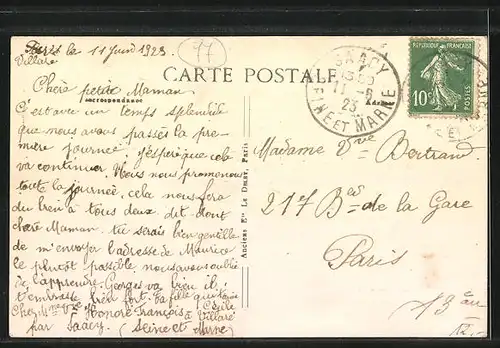 Paris le 11 Juin 1923
Villaré
97
CARTE POSTALE
Correspondance
Chère petite Maman
C'est avec un temps splendide
que nous avons passés la pre-
mière journée, j'espère que cela
va continuer. Nous nous promenons
toute la journée, cela nous fera
du bien à tous deux. dit dont
chère Maman. tu serais bien gentille
de m'envoyer l'adresse de Maurice
le plutôt possible, nous avons oublié
de l'apprendre. Georges va bien il
t'embrasse bien fort. ta fille qui t'aime
Cécile
Chez Mme Vve Honoré François à Villaré
par Saacy (Seine et Marne)
Anciens Etts Le Deley, Paris
SAACY
11 - 6
23
SEINE ET MARNE
RÉPUBLIQUE FRANÇAISE
10c
POSTES
Madame Vve Bertrand
217 Bd de la Gare
Paris
13 arr